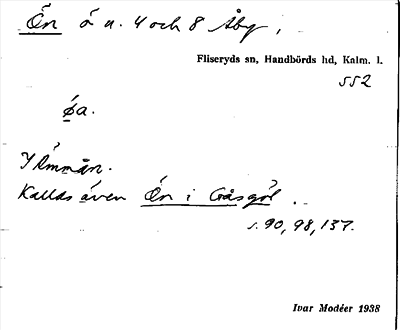 Ön ö u. 4 och 8 Åby,
Fliseryds sn, Handbörds hd, Kalm. l.
552
øa.
I Emmån.
Kallas även Ön i Gåsgöl.
s. 90, 98, 137.
Ivar Modéer 1938